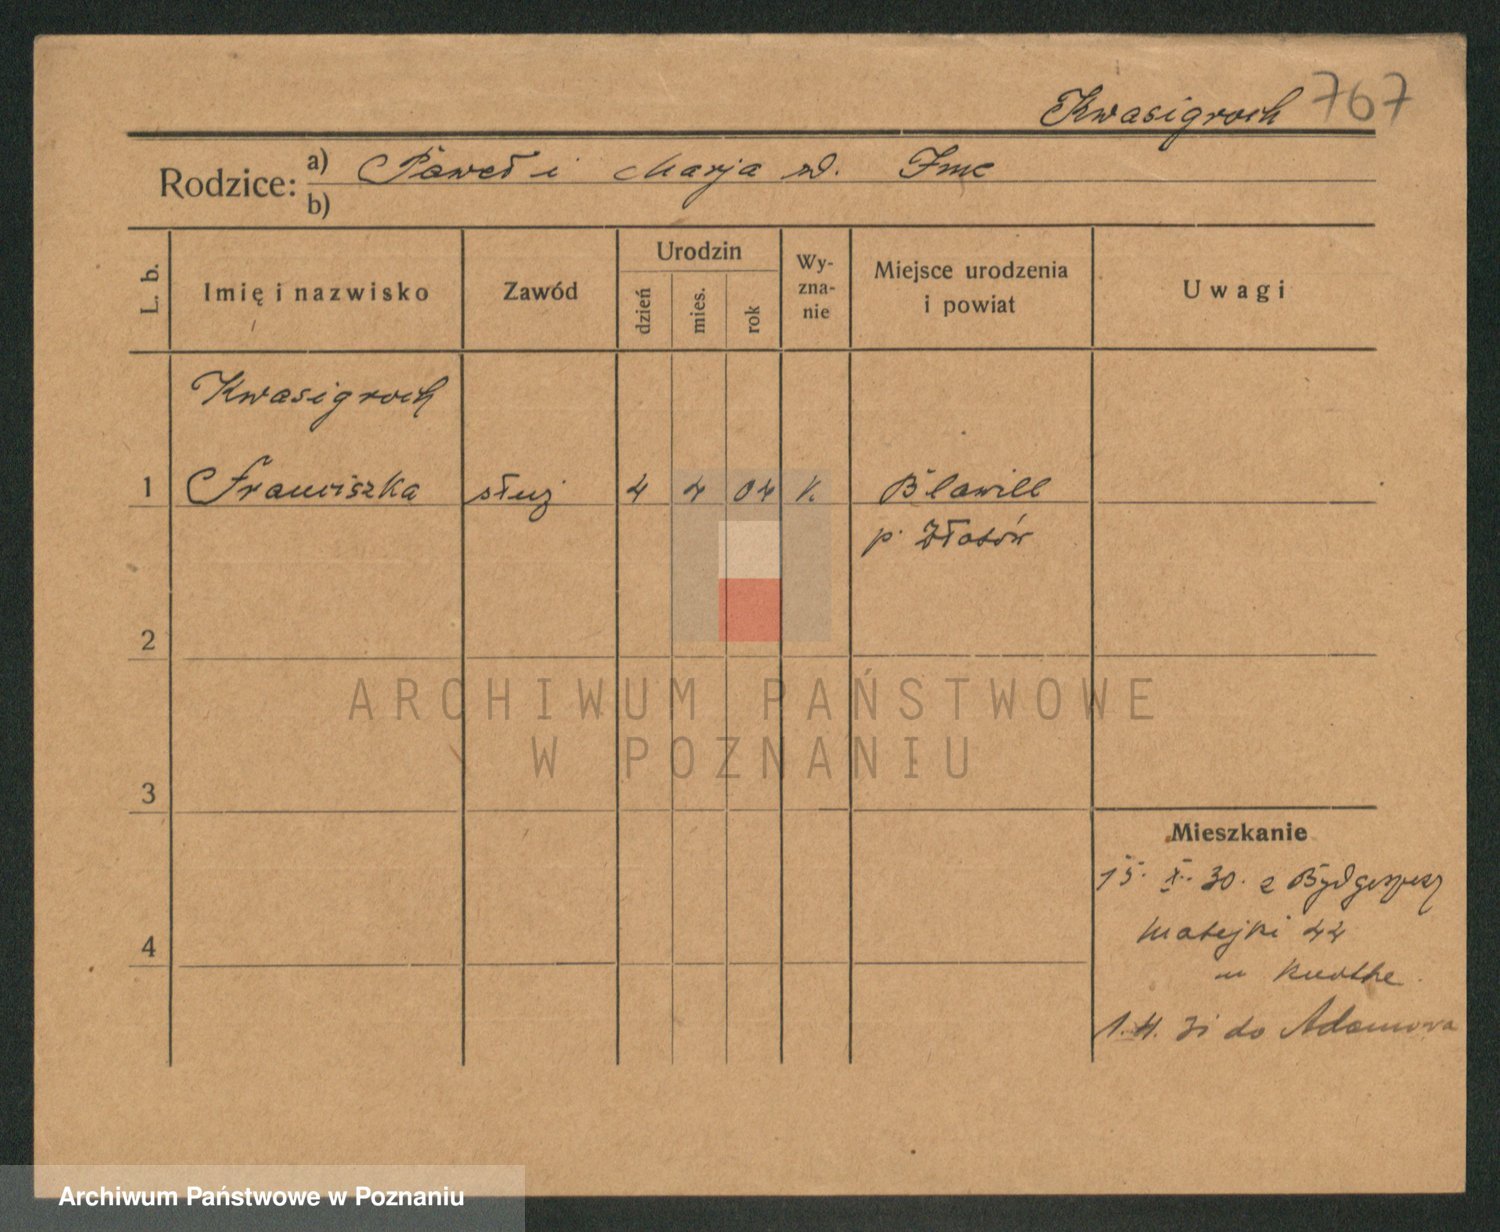 Kwasigroch 767
Rodzice: a) Paweł i Marja
b)
L. b.
Imię i nazwisko
Zawód
Urodzin
dzień
mies.
rok
Wy-
zna-
nie
Miejsce urodzenia
i powiat
Uwagi
Kwasigroch
1 Franciszka służ 4 4 04 k.
p. Złotów
2
3
4
Mieszkanie
15. X. 30. z Bydgoszczy
Matejki 44
do Adamowa
ARCHIWUM PAŃSTWOWE
W POZNANIU
Archiwum Państwowe w Poznaniu